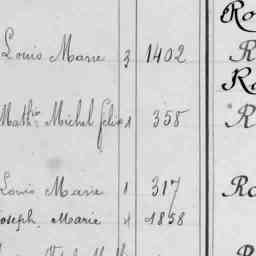 Ro
Louis Marie 3 1402 R
Ro
Math.n Michel felix 1 358 R
Louis Marie 1 317 Ro
Joseph Marie 4 1858